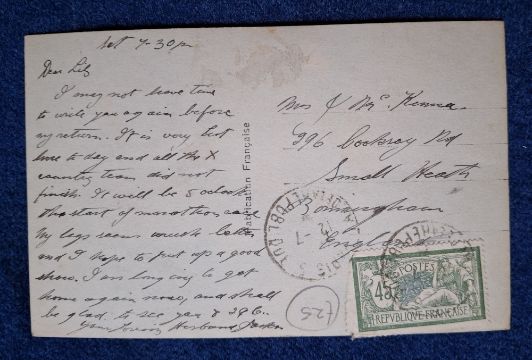 Sat 7-30 p
Dear Lil,
I may not have time
to write you again before
my return. It is very hot
here to day and all the X
country team did not
finish. It will be 5 oclock
the start of marathon race
My legs seems much better
and I hope to put up a good
show. I am longing to get
home again now, and shall
be glad to see you & 296.
Your loving Husband
Mrs J Mc Kenna
296 Rd
Small Heath
Birmingham
England
Fabrication Française
£25
POSTES
45
REPUBLIQUE FRANÇAISE